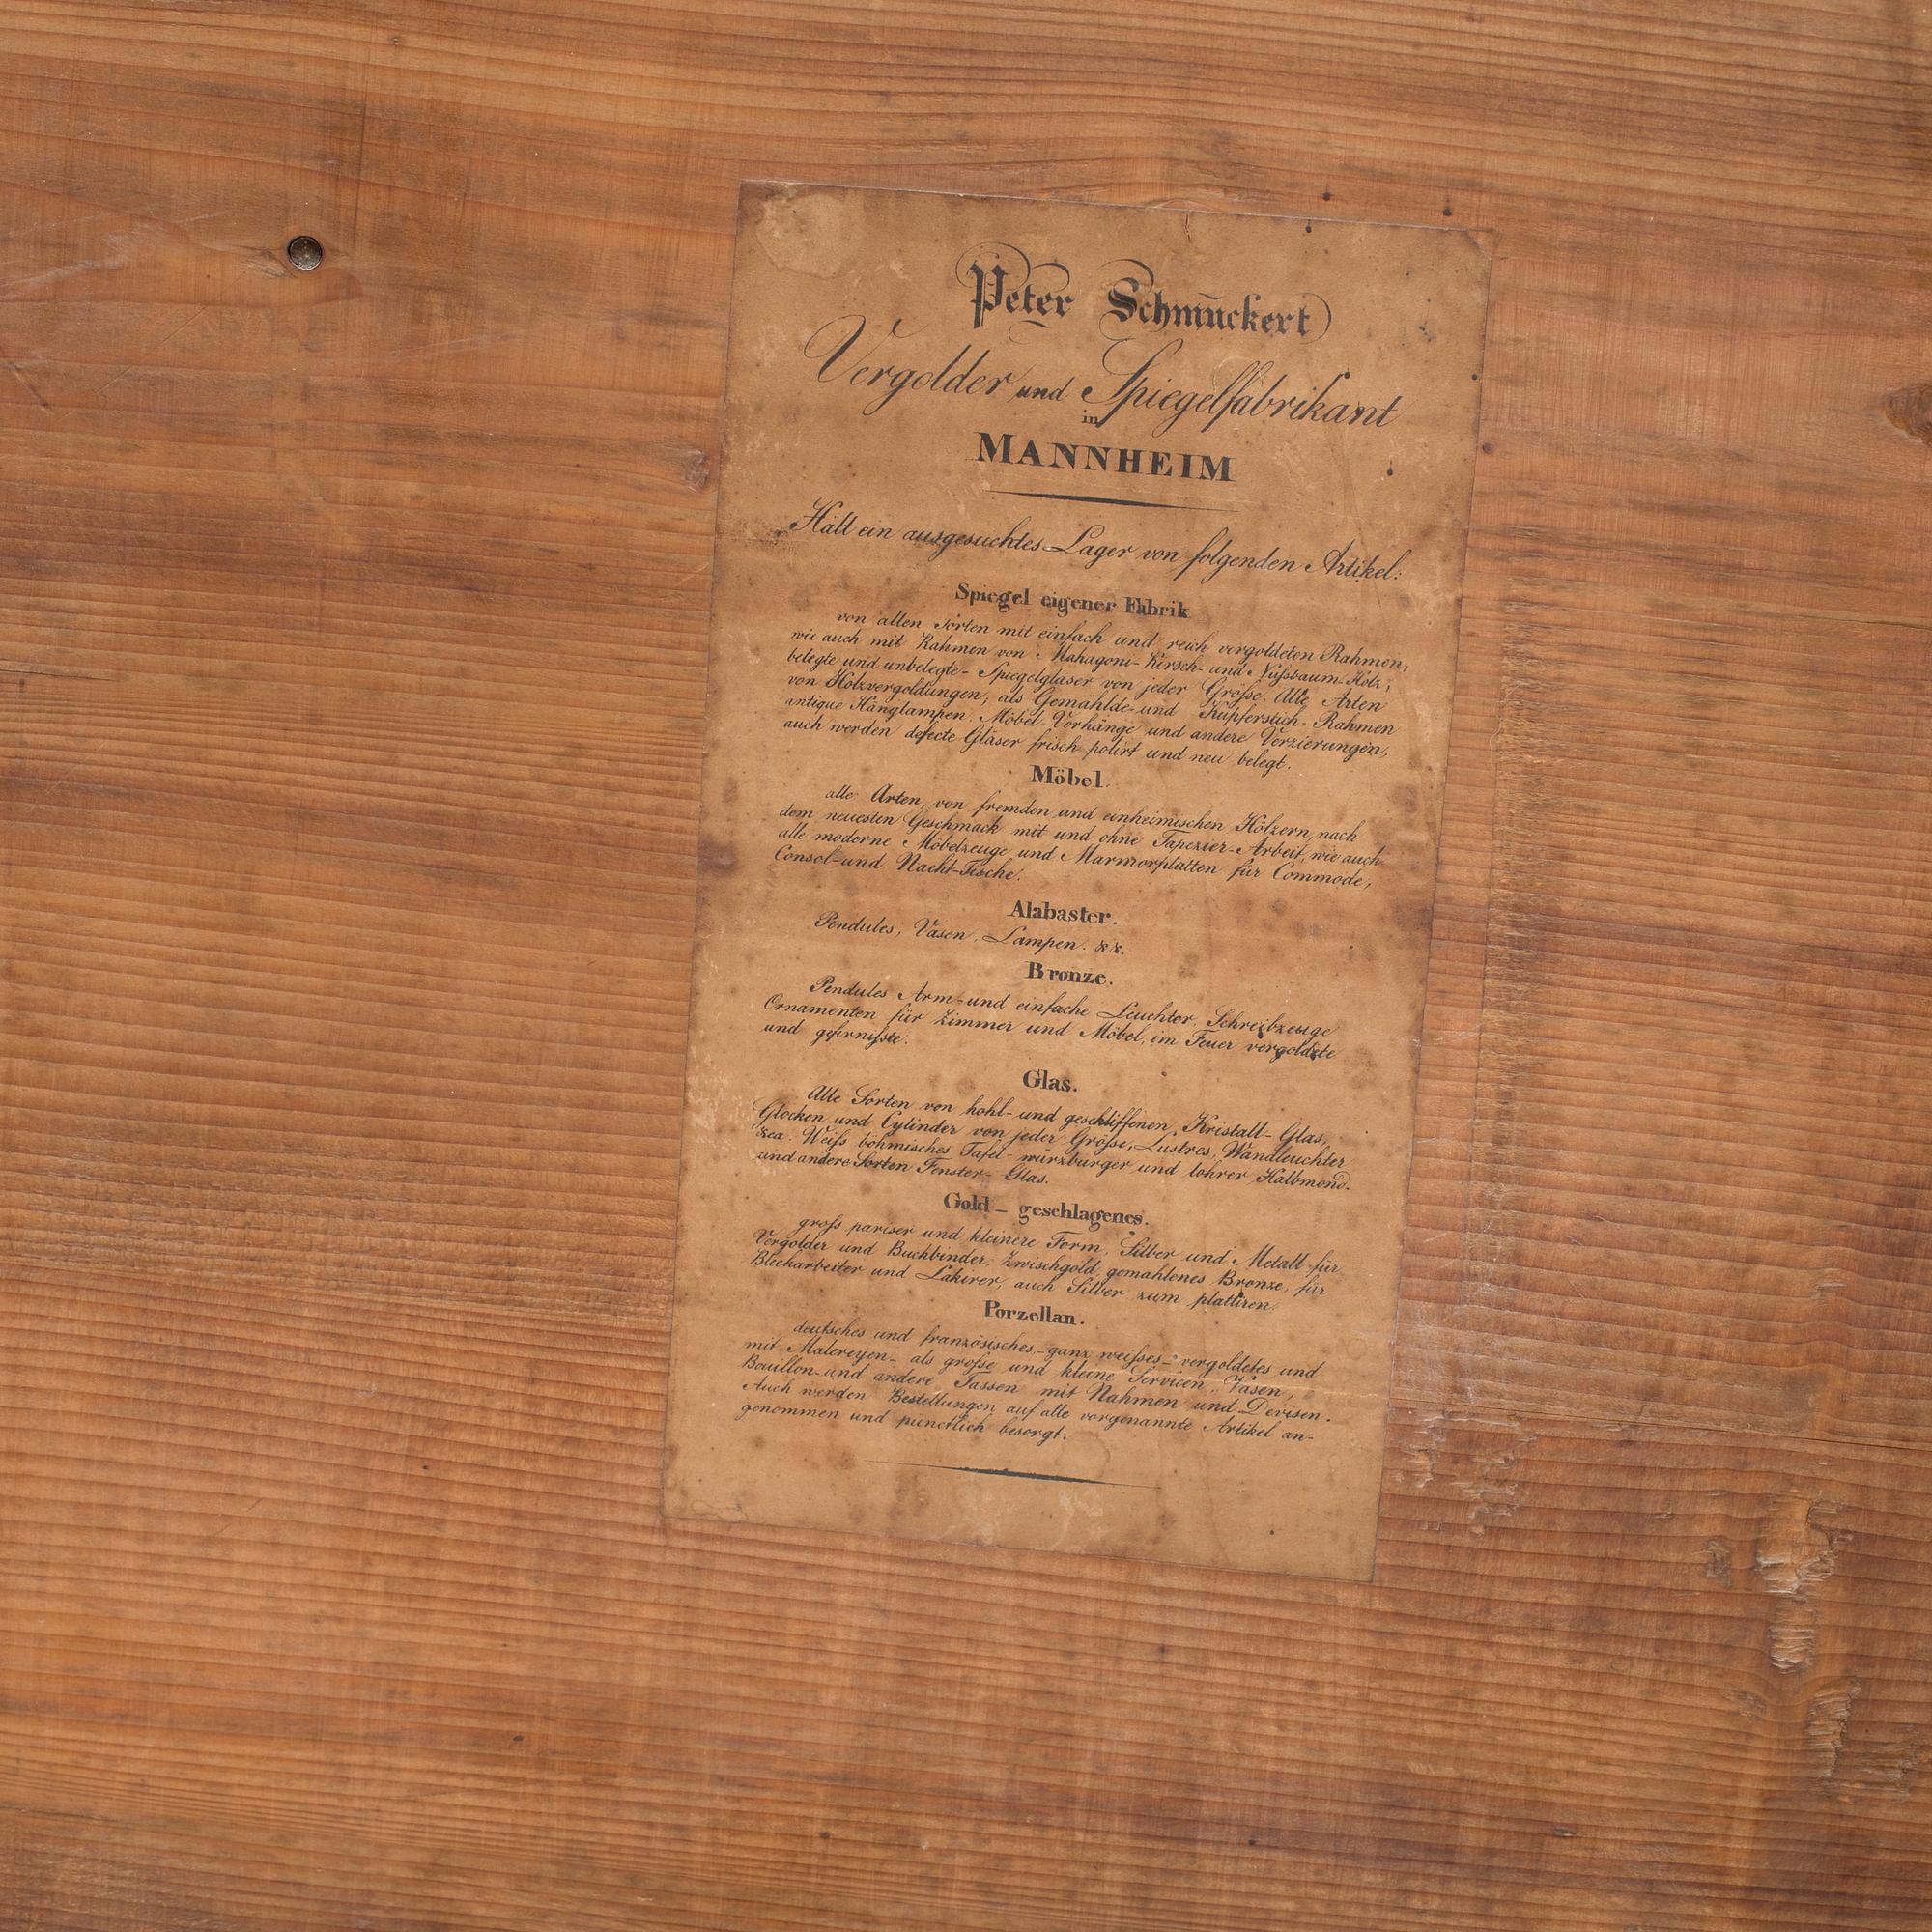 Peter Schmuckert
Vergolder und Spiegelfabrikant
in
MANNHEIM
Hält ein ausgesuchtes Lager von folgenden Artikel:
Spiegel eigener Fabrik
von allen Sorten mit einfach und reich vergoldeten Rahmen,
wie auch mit Rahmen von Mahagoni-Kirsch- und Nußbaum-Holz,
belegte und unbelegte- Spiegelgläser von jeder Größe. Alle Arten
von Holzvergoldungen, als Gemählde- und Kupferstich-Rahmen
antique Hänglampen, Möbel-Vorhänge und andere Verzierungen,
auch werden defecte Gläser frisch polirt und neu belegt.
Möbel.
alle Arten, von fremden und einheimischen Hölzern, nach
dem neuesten Geschmack mit und ohne Tapezier-Arbeit, wie auch
alle moderne Möbelzeuge und Marmorplatten für Commode,
Consol-und Nacht-Tische.
Alabaster.
Pendules, Vasen, Lampen. &&.
Bronze.
Pendules Arm-und einfache Leuchter, Schreibzeuge
Ornamenten für Zimmer und Möbel, im Feuer vergoldete
und gefirnißte.
Glas.
Alle Sorten von hohl- und geschliffenen Kristall-Glas,
Glocken und Cylinder von jeder Größe, Lustres, Wandleuchter
&ca. Weiß böhmisches Tafel- würzburger und lohrer Halbmond-
und andere Sorten Fenster- Glas.
Gold - geschlagenes.
groß pariser und kleinere Form, Silber und Metall für
Vergolder und Buchbinder, Zwischgold, gemahlenes Bronze, für
Blecharbeiter und Lakirer, auch Silber zum plattiren.
Porzellan.
deutsches und französisches-ganz weißes-vergoldetes und
mit Malereyen- als große und kleine Servicen, Vasen,
Bouillon-und andere Tassen mit Nahmen und Devisen.
Auch werden Bestellungen auf alle vorgenannte Artikel an-
genommen und pünctlich besorgt.